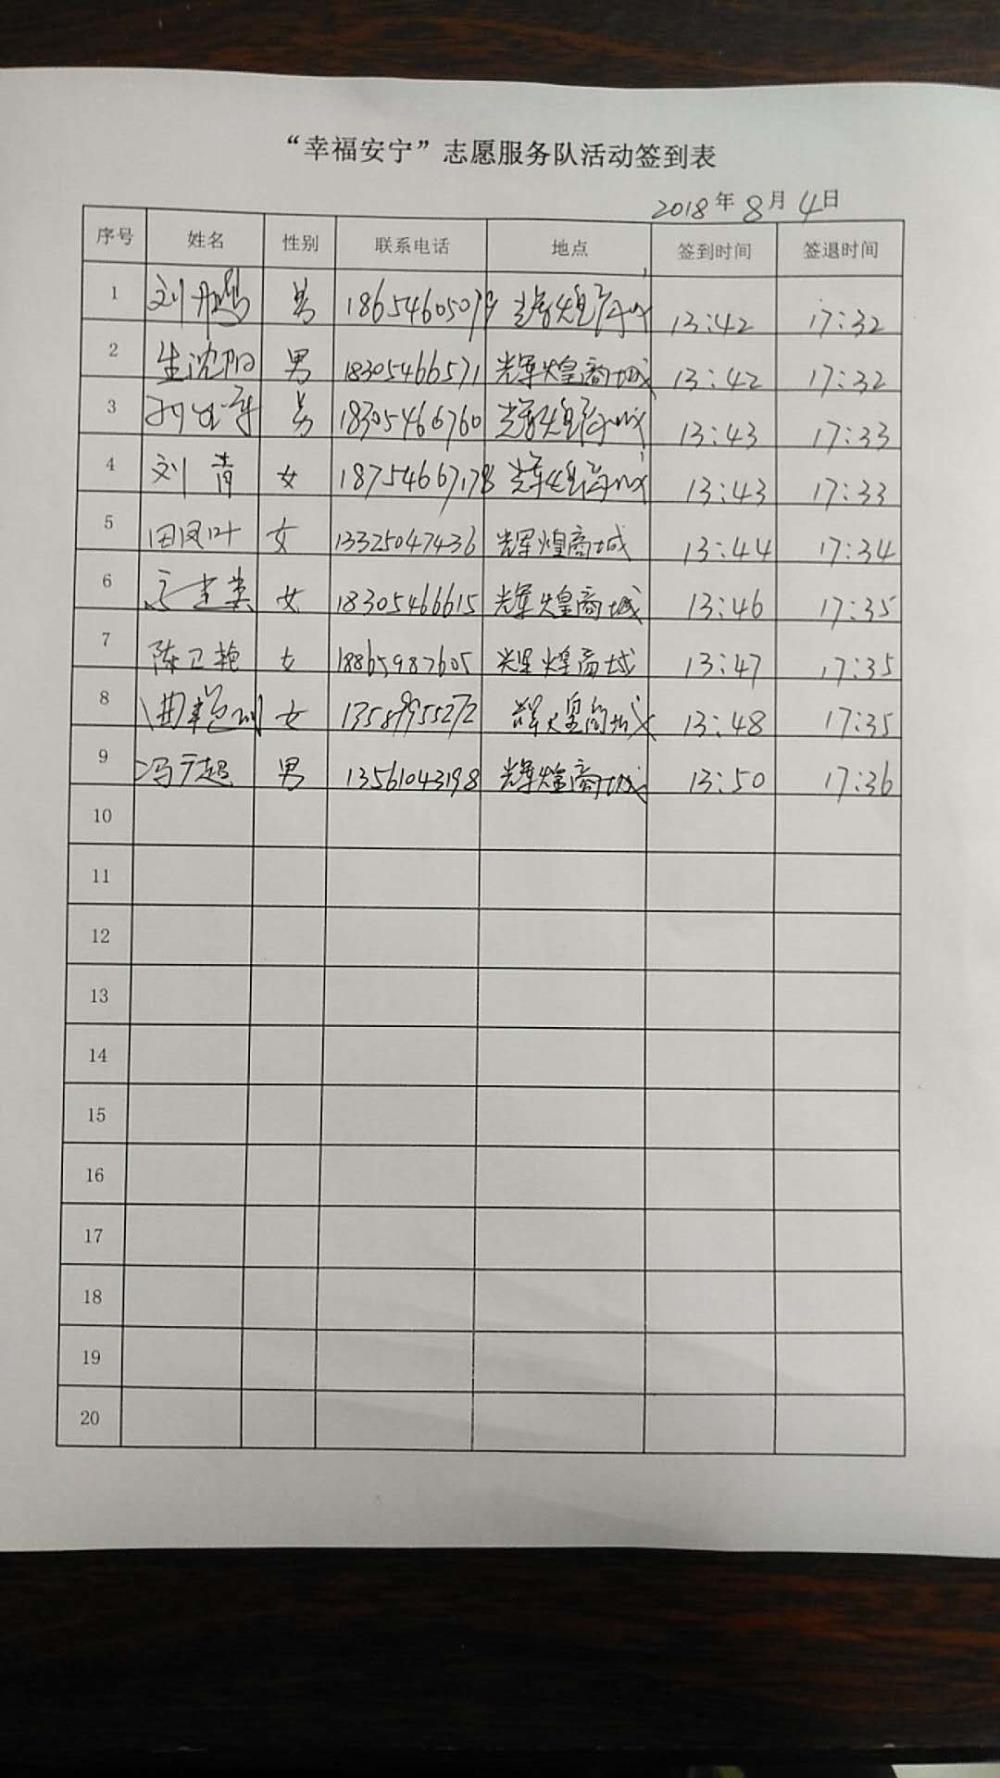 “幸福安宁”志愿服务队活动签到表
2018年8月4日
序号 姓名 性别 联系电话 地点 签到时间 签退时间
1 刘鹏 男 18654605079 光辉煌商城 13:42 17:32
2 生沈阳 男 18305466571 辉煌商城 13:42 17:32
3 男 18305466760 辉煌商城 13:43 17:33
4 刘青 女 18754667178 辉煌商城 13:43 17:33
5 田凤叶 女 13325047436 辉煌商城 13:44 17:34
6 女 18305466615 辉煌商城 13:46 17:35
7 陈卫艳 女 18865987605 辉煌商城 13:47 17:35
8 女 13589955272 辉煌商城 13:48 17:35
9 冯广超 男 13561043198 辉煌商城 13:50 17:36
10
11
12
13
14
15
16
17
18
19
20